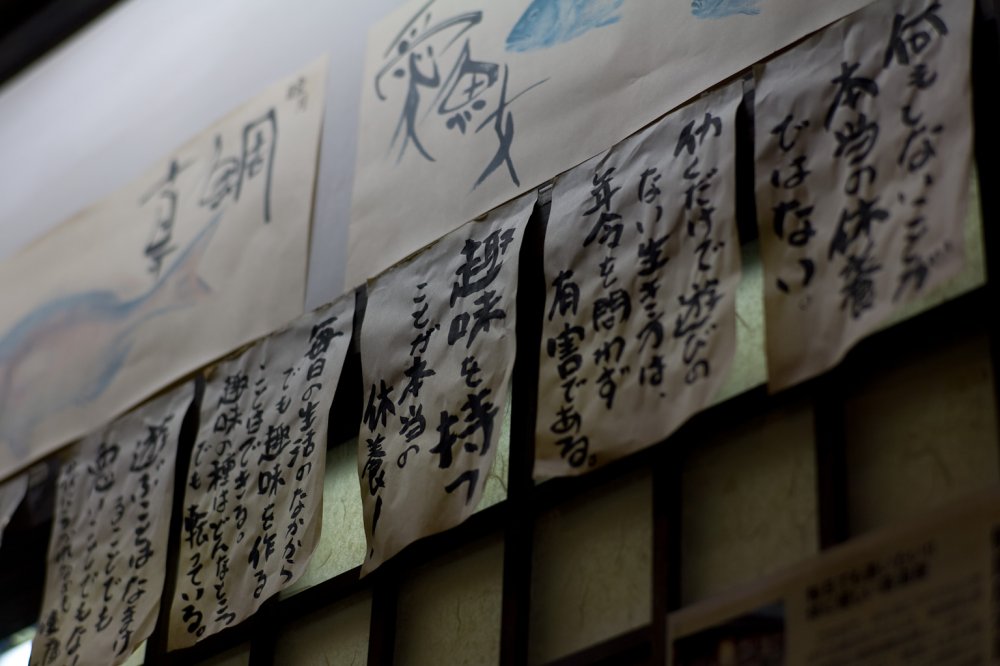 愛魚女
鯛
何もしないことが
本当の休養
ではない。
仂くだけで遊びの
ない生き方は、
年令を問わず
有害である。
趣味を持つ
ことが本当の
休養!
毎日の生活のなかから
でも趣味を作る
ことはできる。
趣味の種はどんなところ
でも転っている。
遊ぶことはなまけ
ることでも
悪いことでもない